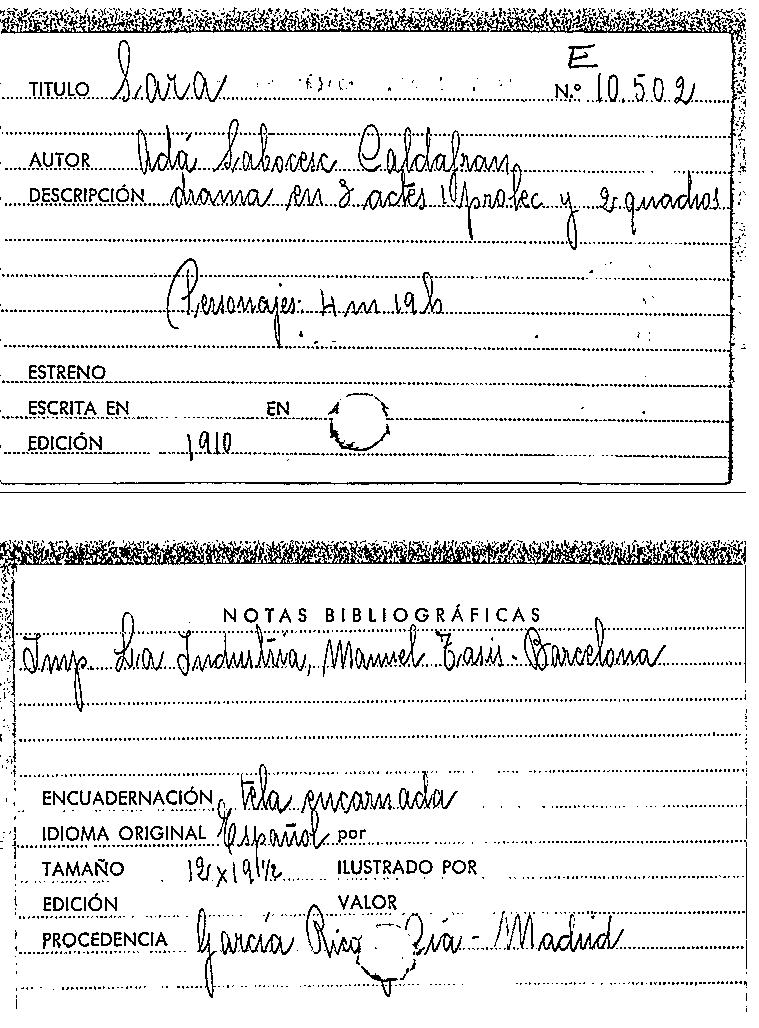 E
TITULO Sara N.º 10.502
AUTOR Adá Sabocesc Caldafran
DESCRIPCIÓN drama en 3 actes 1 prolec y 2 quadros
Personajes: 4 m 19 h
ESTRENO
ESCRITA EN EN
EDICIÓN 1910
NOTAS BIBLIOGRÁFICAS
Imp. La Industria, Manuel Tasis - Barcelona
ENCUADERNACIÓN tela encarnada
IDIOMA ORIGINAL Español por
TAMAÑO 12 x 19 1/2 ILUSTRADO POR
EDICIÓN VALOR
PROCEDENCIA García Rico Cía - Madrid